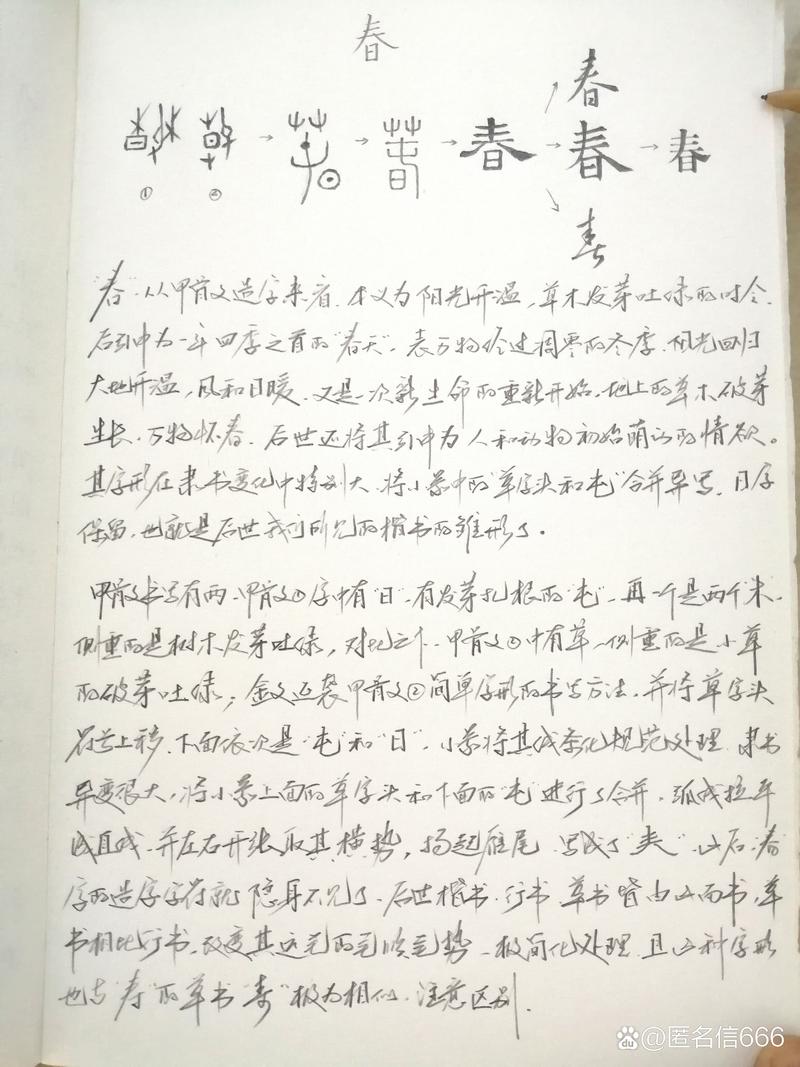 春
春
① ② → → 春 → 春 → 春
"春",从甲骨文造字来看,本义为阳光升温,草木发芽吐绿的时令,
后引申为一年四季之首的"春天",表万物经过凋零的冬季,阳光回归
大地升温,风和日暖,又是一次新生命的重新开始,地上的草木破芽
生长,万物怀春,后世还将其引申为人和动物初始萌动的情欲。
其字形在隶书变化中特别大,将小篆中的"草字头和屯"合并异写,日字
保留,也就是后世我们所见的楷书的雏形了。
甲骨文书写有两,甲骨文①字中有"日",有发芽扎根的"屯",再一个是两个"木",
侧重的是树木发芽吐绿,对比之下,甲骨文②中有草,侧重的是小草
的破芽吐绿;金文延袭甲骨文②简单字形的书写方法,并将草字头
符号上移,下面依次是"屯"和"日",小篆将其线条化规范处理,隶书
异变很大,将小篆上面的草字头和下面的"屯"进行了合并,弧线拉平
成直线,并左右开张取其横势,扬起雁尾,写成了"夫",此后"春"
字的造字字符就隐身不见了,后世楷书、行书、草书皆由此而书,草
书相比行书,改变其连笔的笔顺笔势,极简化处理,且这种字形
也与"寿"的草书"寿"极为相似,注意区别。
@匿名信666